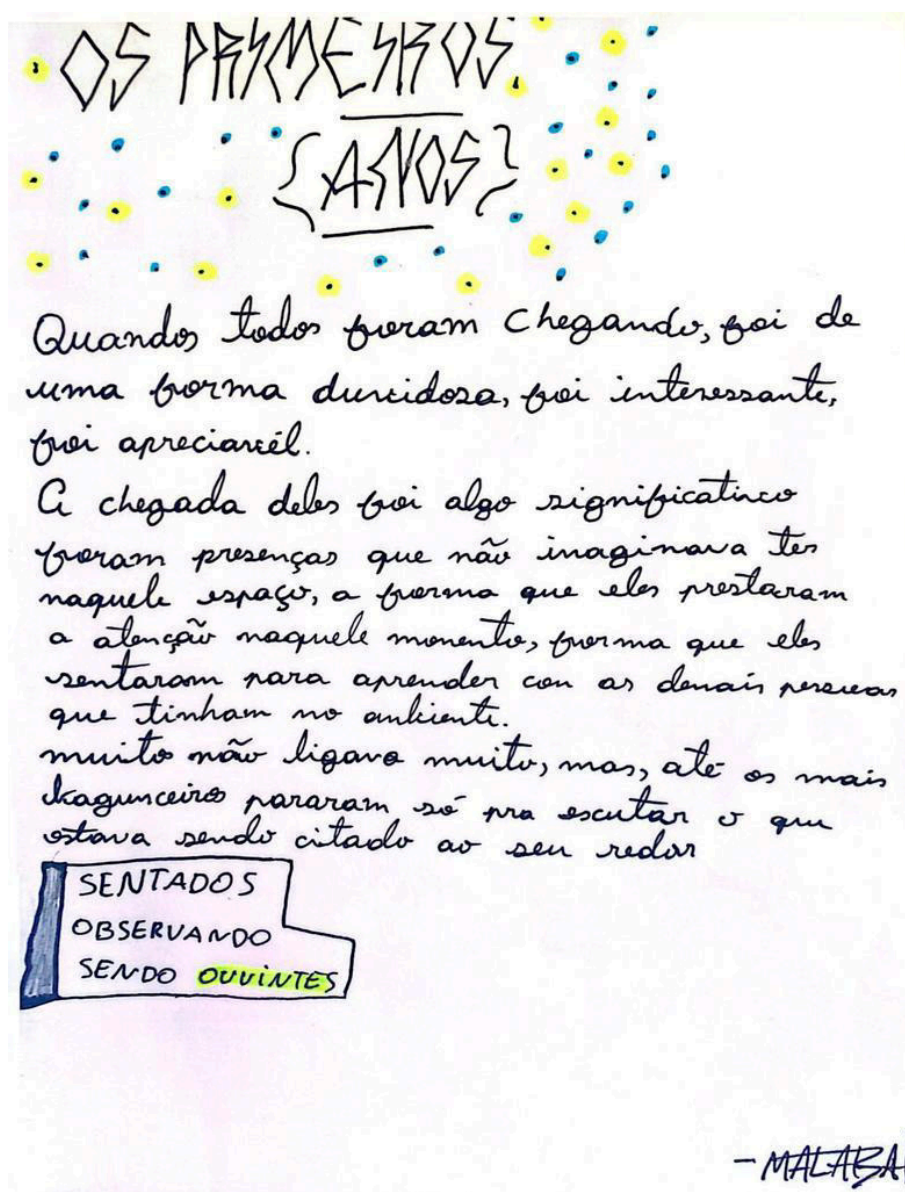 OS PRIMEIROS.
{ANOS}
Quandos todos foram chegando, foi de
uma forma duvidosa, foi interessante,
foi apreciavél.
A chegada deles foi algo significativo
foram presenças que não imaginava ter
naquele espaço, a forma que eles prestaram
a atenção naquele momento, forma que eles
sentaram para aprender con as demais pessoas
que tinham no ambiente.
muito não ligava muito, mas, até os mais
bagunceiros pararam só pra escutar o que
estava sendo citado ao seu redor
SENTADOS
OBSERVANDO
SENDO OUVINTES